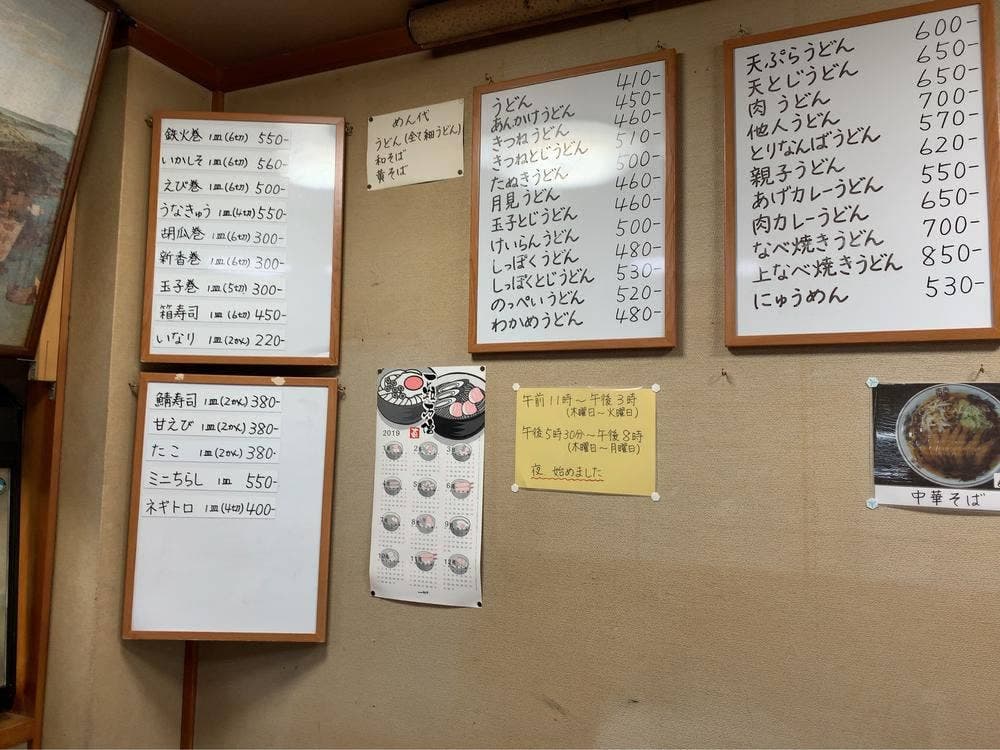 鉄火巻 1皿(6切) 550-
いかしそ 1皿(6切) 560-
えび巻 1皿(6切) 500-
うなきゅう 1皿(4切) 550-
胡瓜巻 1皿(6切) 300-
新香巻 1皿(6切) 300-
玉子巻 1皿(5切) 300-
箱寿司 1皿(6切) 450-
いなり 1皿(2かん) 220-
鯖寿司 1皿(2かん) 380-
甘えび 1皿(2かん) 380-
たこ 1皿(2かん) 380-
ミニちらし 1皿 550-
ネギトロ 1皿(4切) 400-
めん代
うどん(全て細うどん)
和そば
黄そば
2019
うどん 410-
あんかけうどん 450-
きつねうどん 460-
きつねとじうどん 510-
たぬきうどん 500-
月見うどん 460-
玉子とじうどん 460-
けいらんうどん 500-
しっぽくうどん 480-
しっぽくとじうどん 530-
のっぺいうどん 520-
わかめうどん 480-
午前11時〜午後3時
(木曜日〜火曜日)
午後5時30分〜午後8時
(木曜日〜月曜日)
夜 始めました
天ぷらうどん 600-
天とじうどん 650-
肉うどん 650-
他人うどん 700-
とりなんばうどん 570-
親子うどん 620-
あげカレーうどん 550-
肉カレーうどん 650-
なべ焼きうどん 700-
上なべ焼きうどん 850-
にゅうめん 530-
中華そば